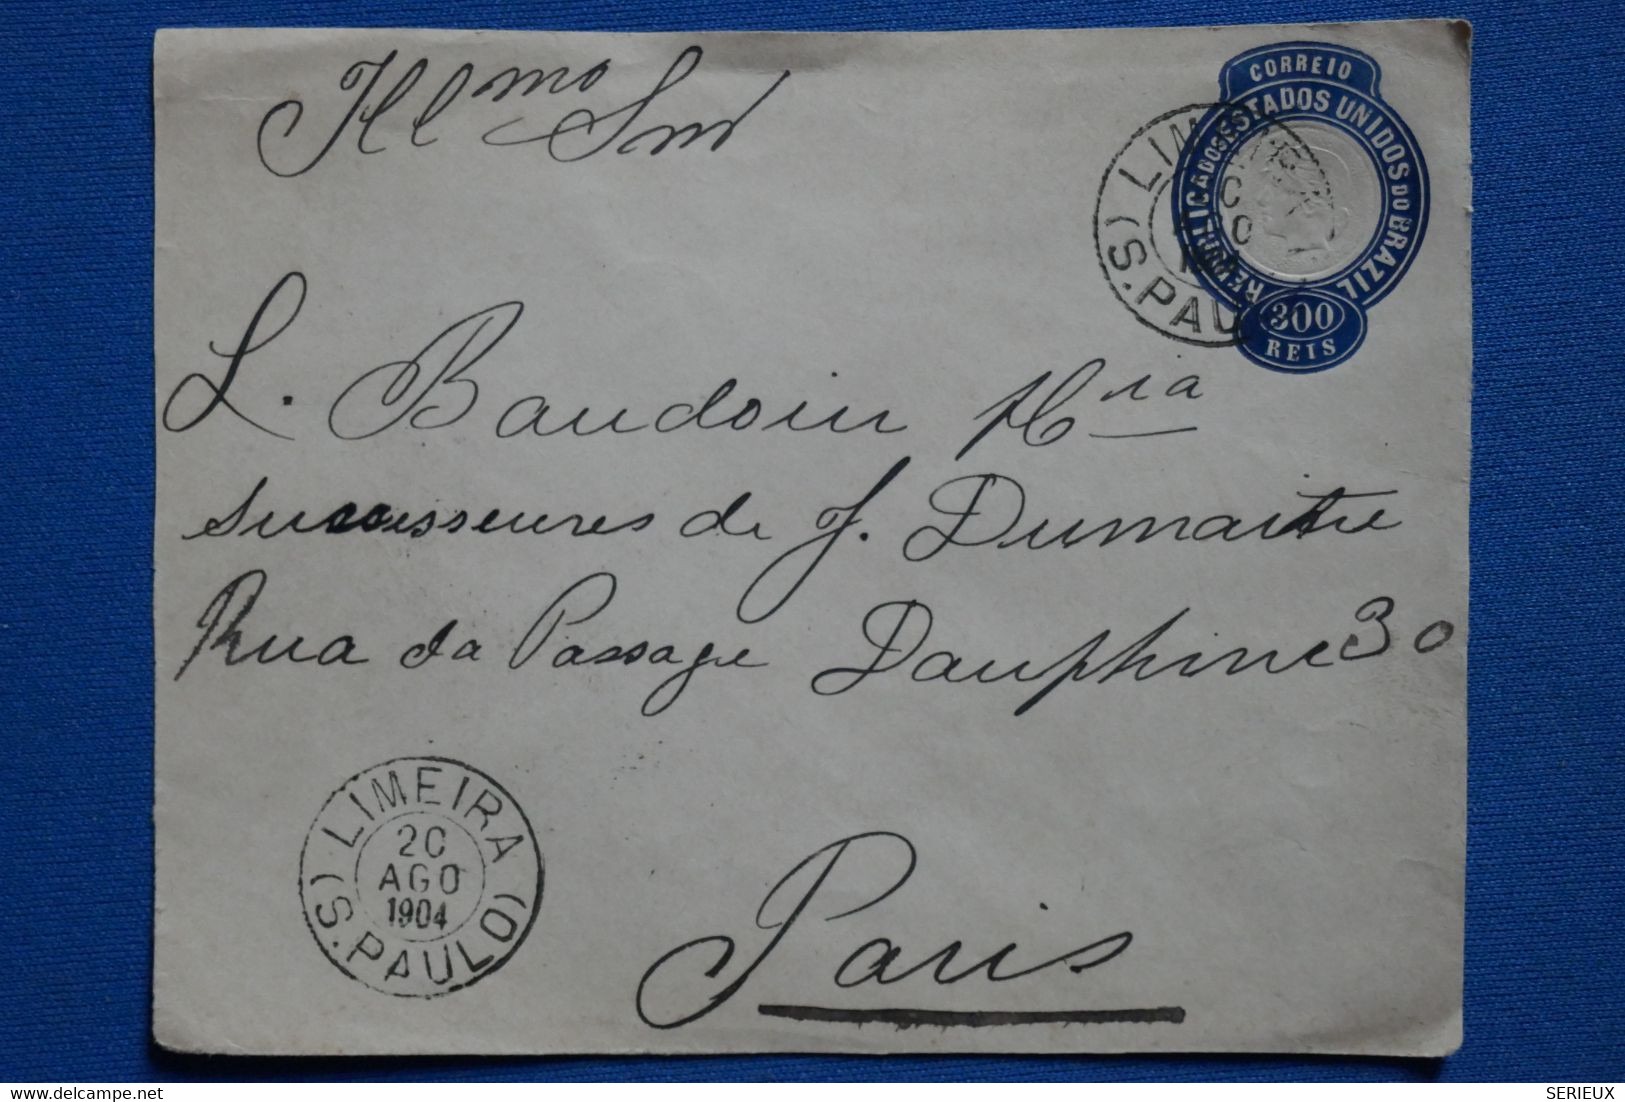 Illmo Snr
CORREIO
REPUBLICA DOS ESTADOS UNIDOS DO BRAZIL
300
REIS
LIMEIRA
(S. PAUL
L. Baudoin
successeures de J. Dumaitre
Rua da Passage Dauphine 30
Paris
LIMEIRA
20
AGO
1904
(S. PAULO)
delcampe.net
SERIEUX